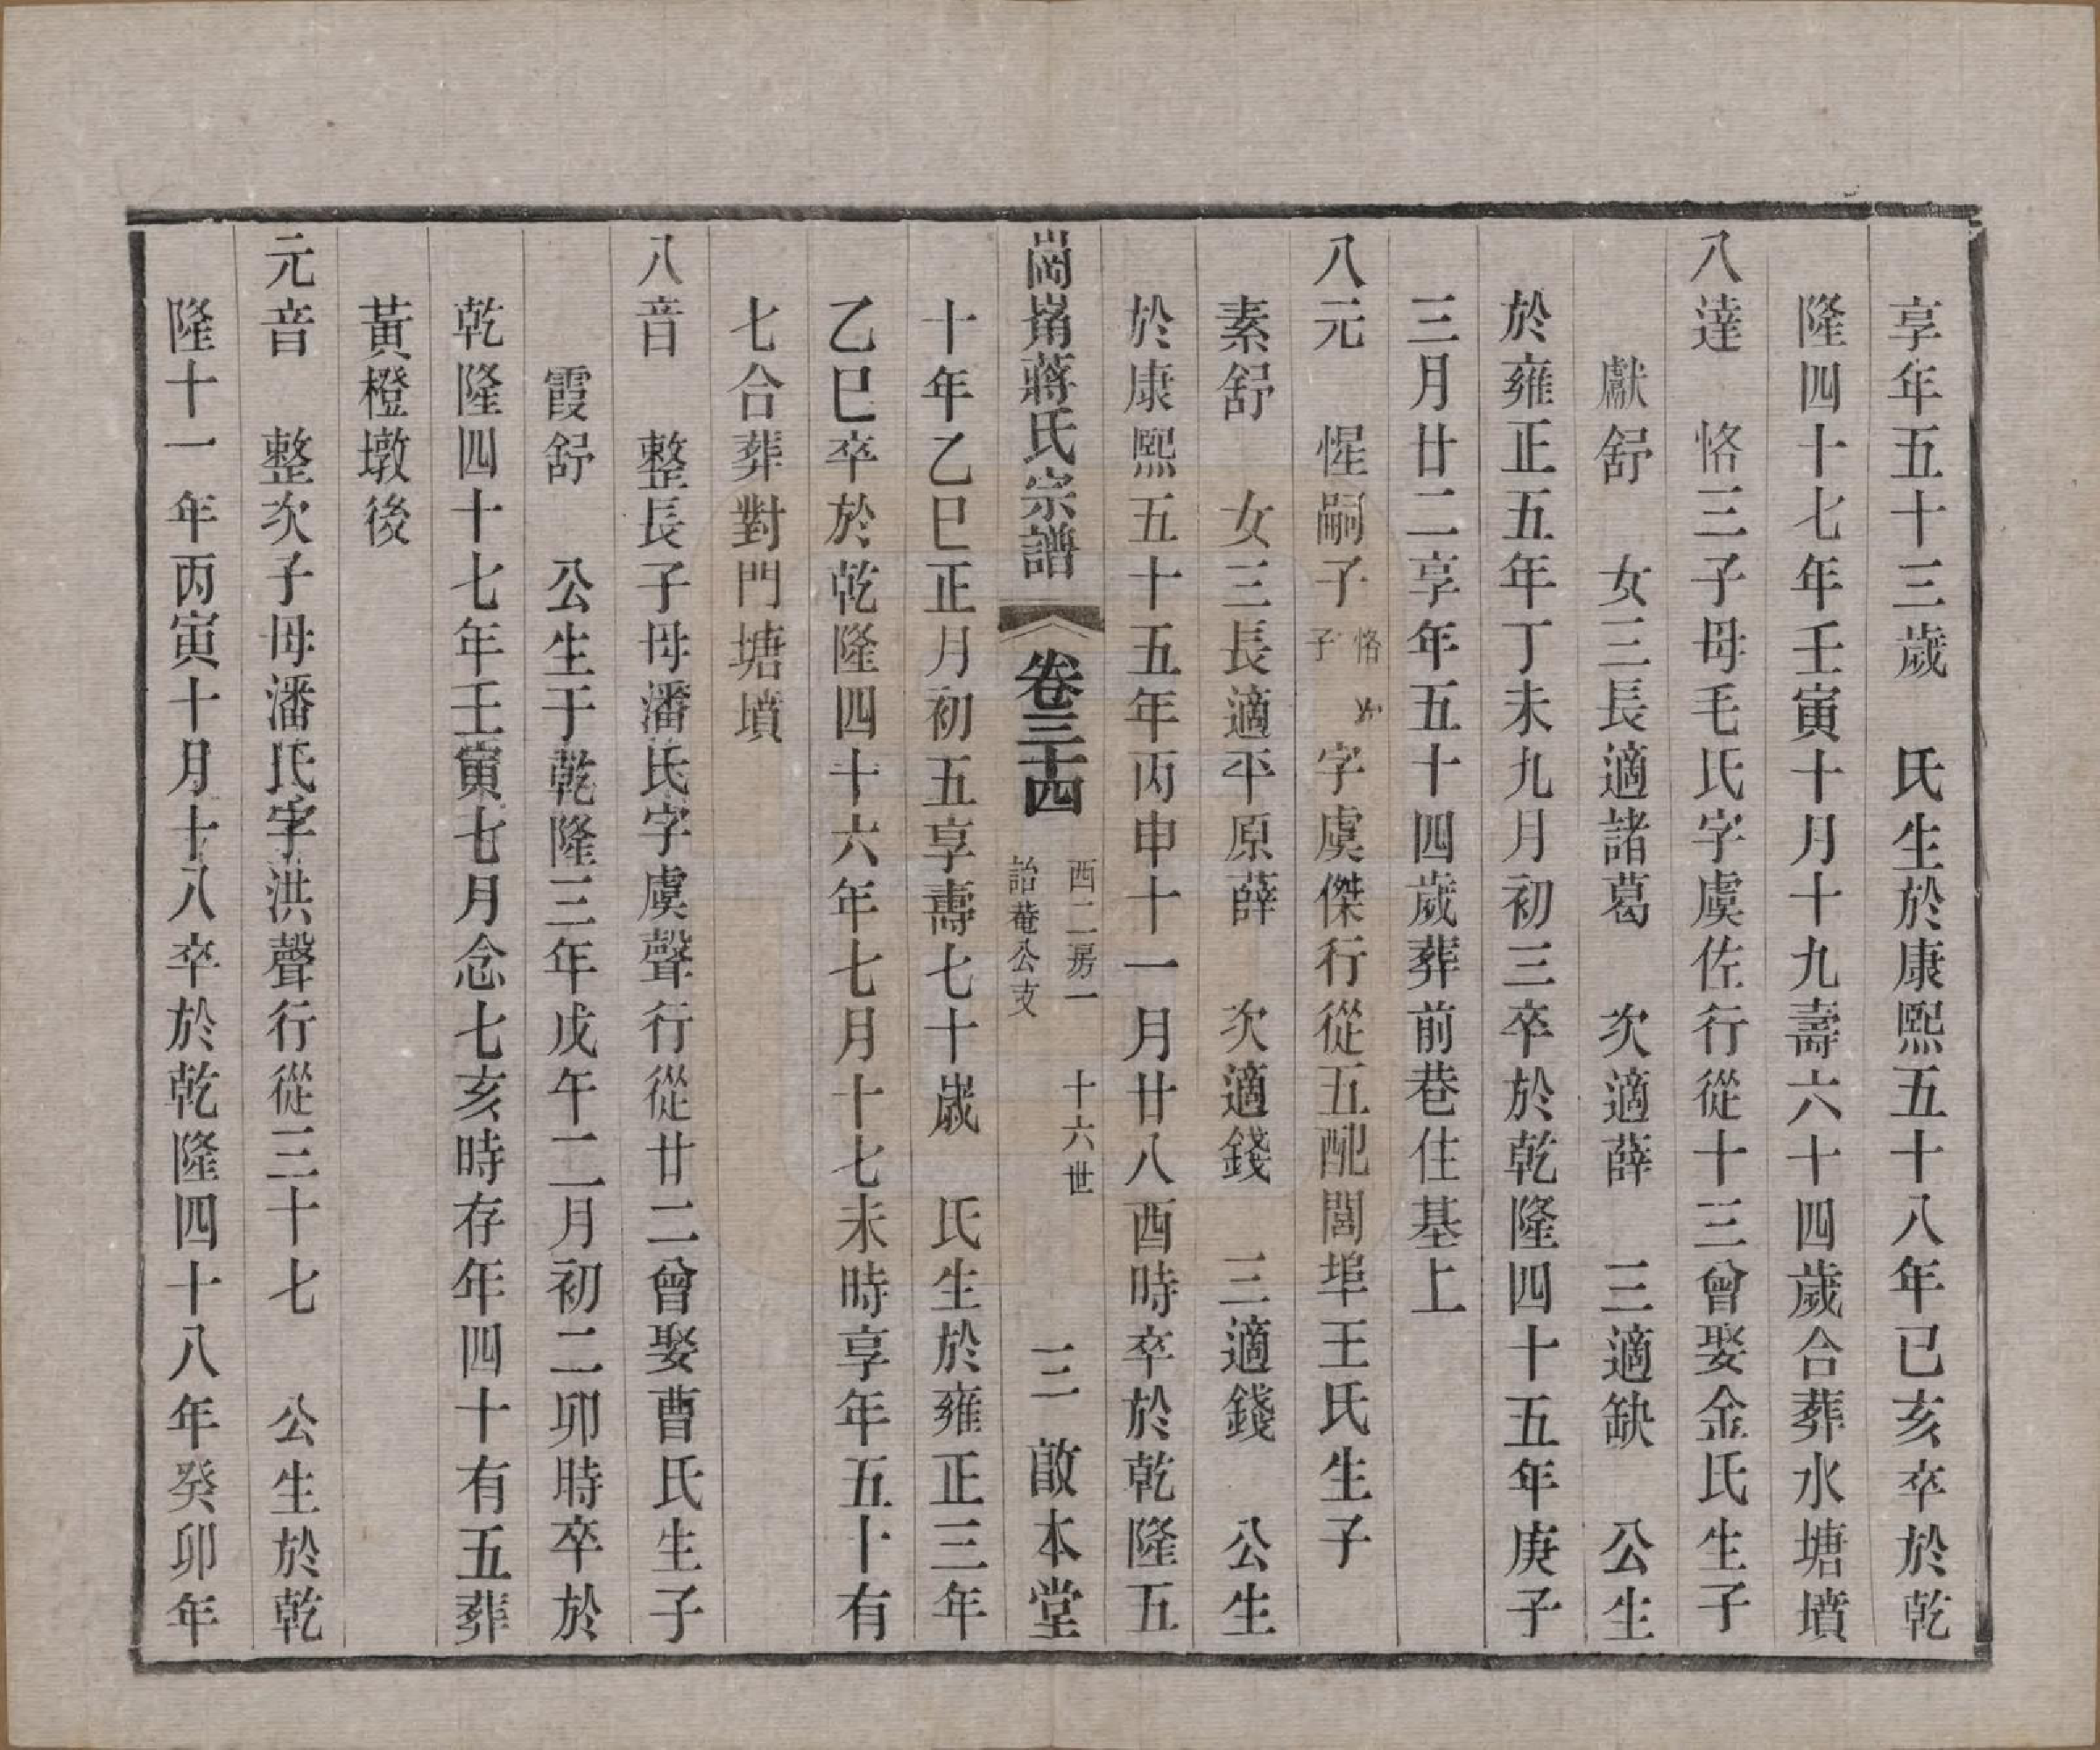 享年五十三歲　氏生於康熙五十八年已亥卒於乾
隆四十七年壬寅十月十九壽六十四歲合葬水塘墳
八達　恪三子母毛氏字虞佐行從十三曾娶金氏生子
獻舒　女三長適諸葛　次適薛　三適缺　公生
於雍正五年丁未九月初三卒於乾隆四十五年庚子
三月廿二享年五十四歲葬前巷住基上
八元　惺嗣子恪次子　字虞傑行從五配閭埠王氏生子
素舒　女三長適平原薛　次適錢　三適錢　公生
於康熙五十五年丙申十一月廿八酉時卒於乾隆五
蔣氏宗譜　卷三十四　西二房一　詒菴公支　十六世　三　敨本堂
十年乙巳正月初五享壽七十歲　氏生於雍正三年
乙巳卒於乾隆四十六年七月十七未時享年五十有
七合葬對門塘墳
八音　整長子母潘氏字虞聲行從廿二曾娶曹氏生子
霞舒　公生于乾隆三年戊午二月初二卯時卒於
乾隆四十七年壬寅七月念七亥時存年四十有五葬
黃橙墩後
元音　整次子母潘氏字洪聲行從三十七　公生於乾
隆十一年丙寅十月十八卒於乾隆四十八年癸卯年